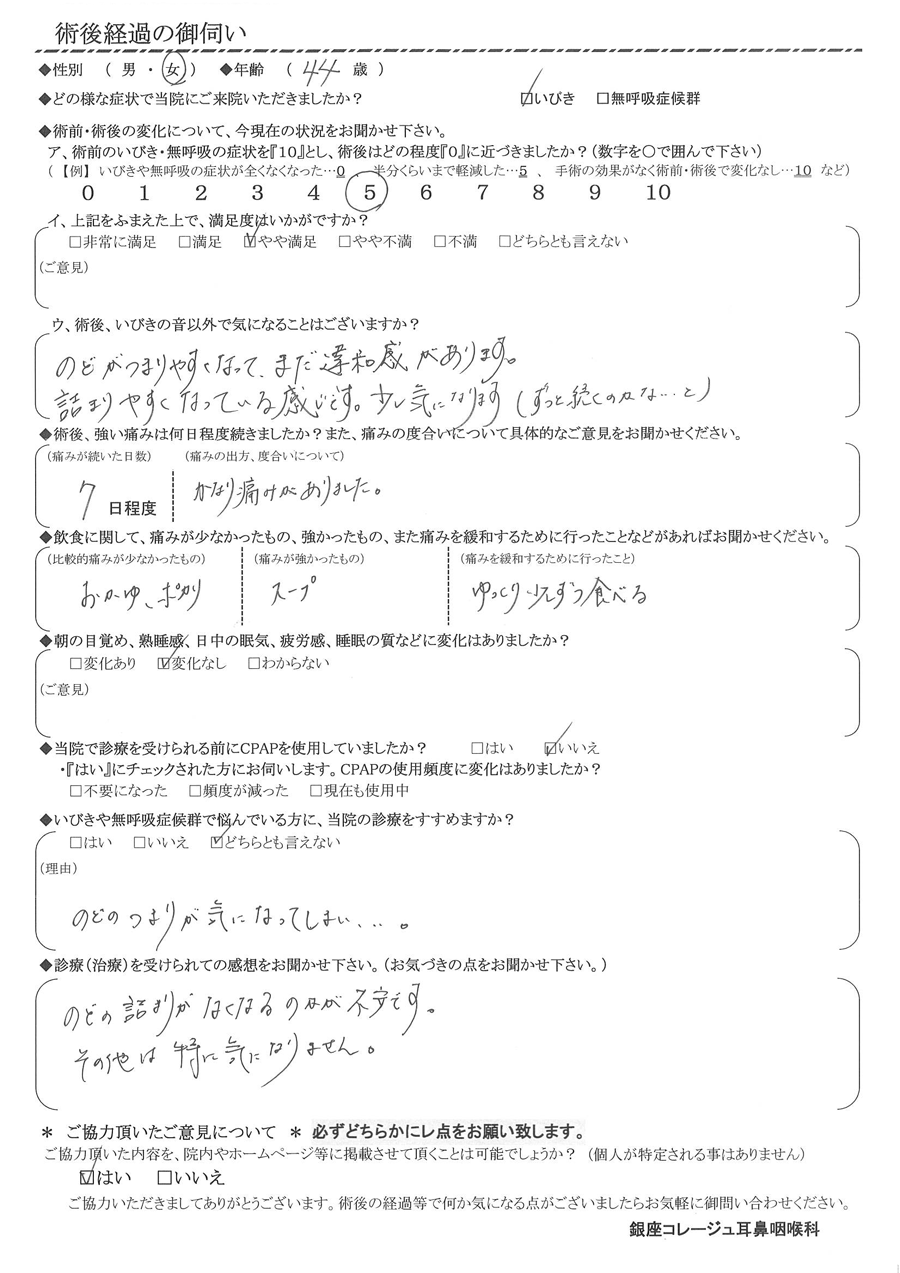 術後経過の御伺い
◆性別 （ 男 ・ 女 ） ◆年齢 （ 44 歳 ）
◆どの様な症状で当院にご来院いただきましたか？ ☑いびき □無呼吸症候群
◆術前・術後の変化について、今現在の状況をお聞かせ下さい。
ア、術前のいびき・無呼吸の症状を『10』とし、術後はどの程度『0』に近づきましたか？（数字を〇で囲んで下さい）
（【例】 いびきや無呼吸の症状が全くなくなった…0 、 半分くらいまで軽減した…5 、 手術の効果がなく術前・術後で変化なし…10 など）
0 1 2 3 4 5 6 7 8 9 10
イ、上記をふまえた上で、満足度はいかがですか？
□非常に満足 □満足 ☑やや満足 □やや不満 □不満 □どちらとも言えない
（ご意見）
ウ、術後、いびきの音以外で気になることはございますか？
のどがつまりやすくなって、まだ違和感があります。
詰まりやすくなっている感じです。少し気になります（ずっと続くのかな…と）
◆術後、強い痛みは何日程度続きましたか？また、痛みの度合いについて具体的なご意見をお聞かせください。
（痛みが続いた日数） （痛みの出方、度合いについて）
7 日程度 かなり痛みがありました。
◆飲食に関して、痛みが少なかったもの、強かったもの、また痛みを緩和するために行ったことなどがあればお聞かせください。
（比較的痛みが少なかったもの） （痛みが強かったもの） （痛みを緩和するために行ったこと）
おかゆ、ポカリ スープ ゆっくり少しずつ食べる
◆朝の目覚め、熟睡感、日中の眠気、疲労感、睡眠の質などに変化はありましたか？
□変化あり ☑変化なし □わからない
（ご意見）
◆当院で診療を受けられる前にCPAPを使用していましたか？ □はい ☑いいえ
・『はい』にチェックされた方にお伺いします。CPAPの使用頻度に変化はありましたか？
□不要になった □頻度が減った □現在も使用中
◆いびきや無呼吸症候群で悩んでいる方に、当院の診療をすすめますか？
□はい □いいえ ☑どちらとも言えない
（理由）
のどのつまりが気になってしまい…。
◆診療（治療）を受けられての感想をお聞かせ下さい。（お気づきの点をお聞かせ下さい。）
のどの詰まりがなくなるのかが不安です。
その他は特に気になりません。
＊ ご協力頂いたご意見について ＊ 必ずどちらかにレ点をお願い致します。
ご協力頂いた内容を、院内やホームページ等に掲載させて頂くことは可能でしょうか？ （個人が特定される事はありません）
☑はい □いいえ
ご協力いただきましてありがとうございます。術後の経過等で何か気になる点がございましたらお気軽に御問い合わせください。
銀座コレージュ耳鼻咽喉科